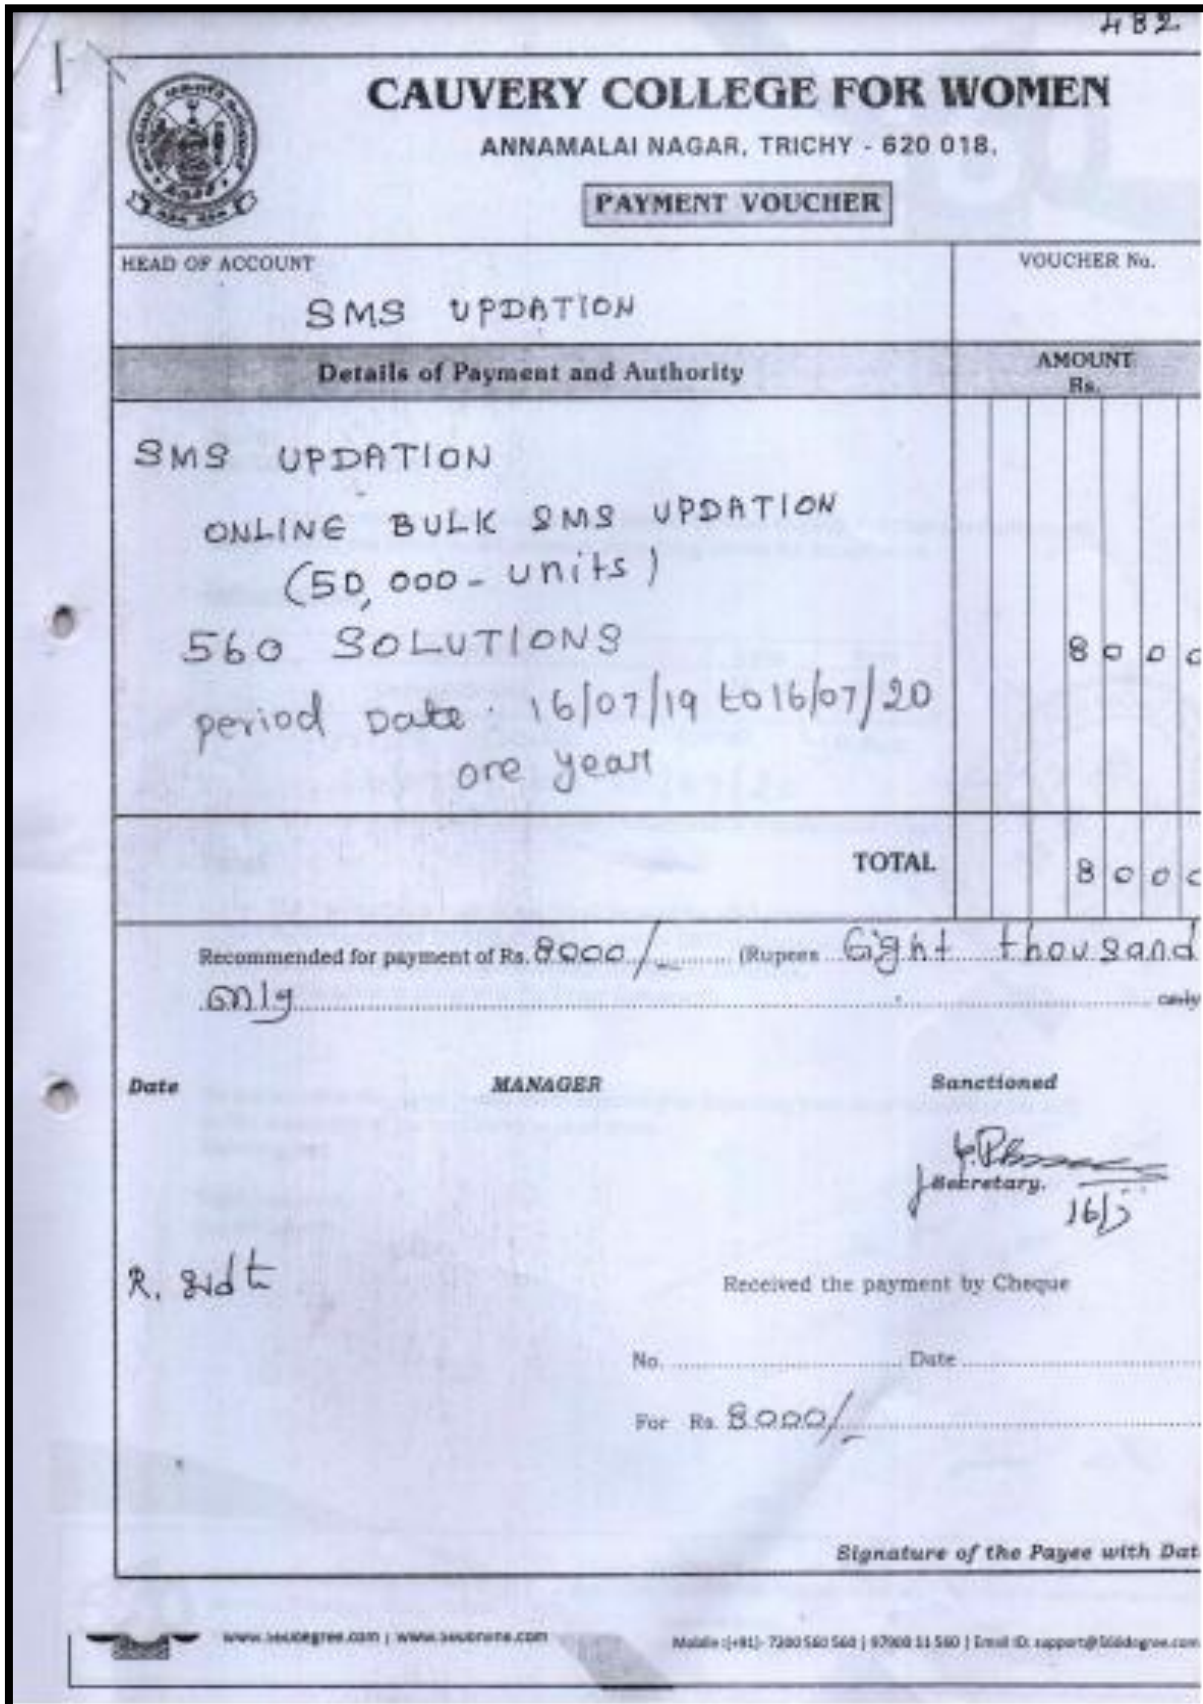 482
CAUVERY COLLEGE FOR WOMEN
ANNAMALAI NAGAR, TRICHY - 620 018.
PAYMENT VOUCHER
HEAD OF ACCOUNT VOUCHER No.
SMS UPDATION
Details of Payment and Authority AMOUNT
Rs.
SMS UPDATION
ONLINE BULK SMS UPDATION
(50,000 - units)
560 SOLUTIONS 8000
period Date : 16/07/19 to 16/07/20
one year
TOTAL 8000
Recommended for payment of Rs. 8000/- (Rupees Eight thousand
only only
Date MANAGER Sanctioned
Secretary.
R.
Received the payment by Cheque
No. Date
For Rs. 8000/-
Signature of the Payee with Dat
Mobile :(+91)- 7200 560 560 | 97900 11 560 | Email ID: support@560degree.com